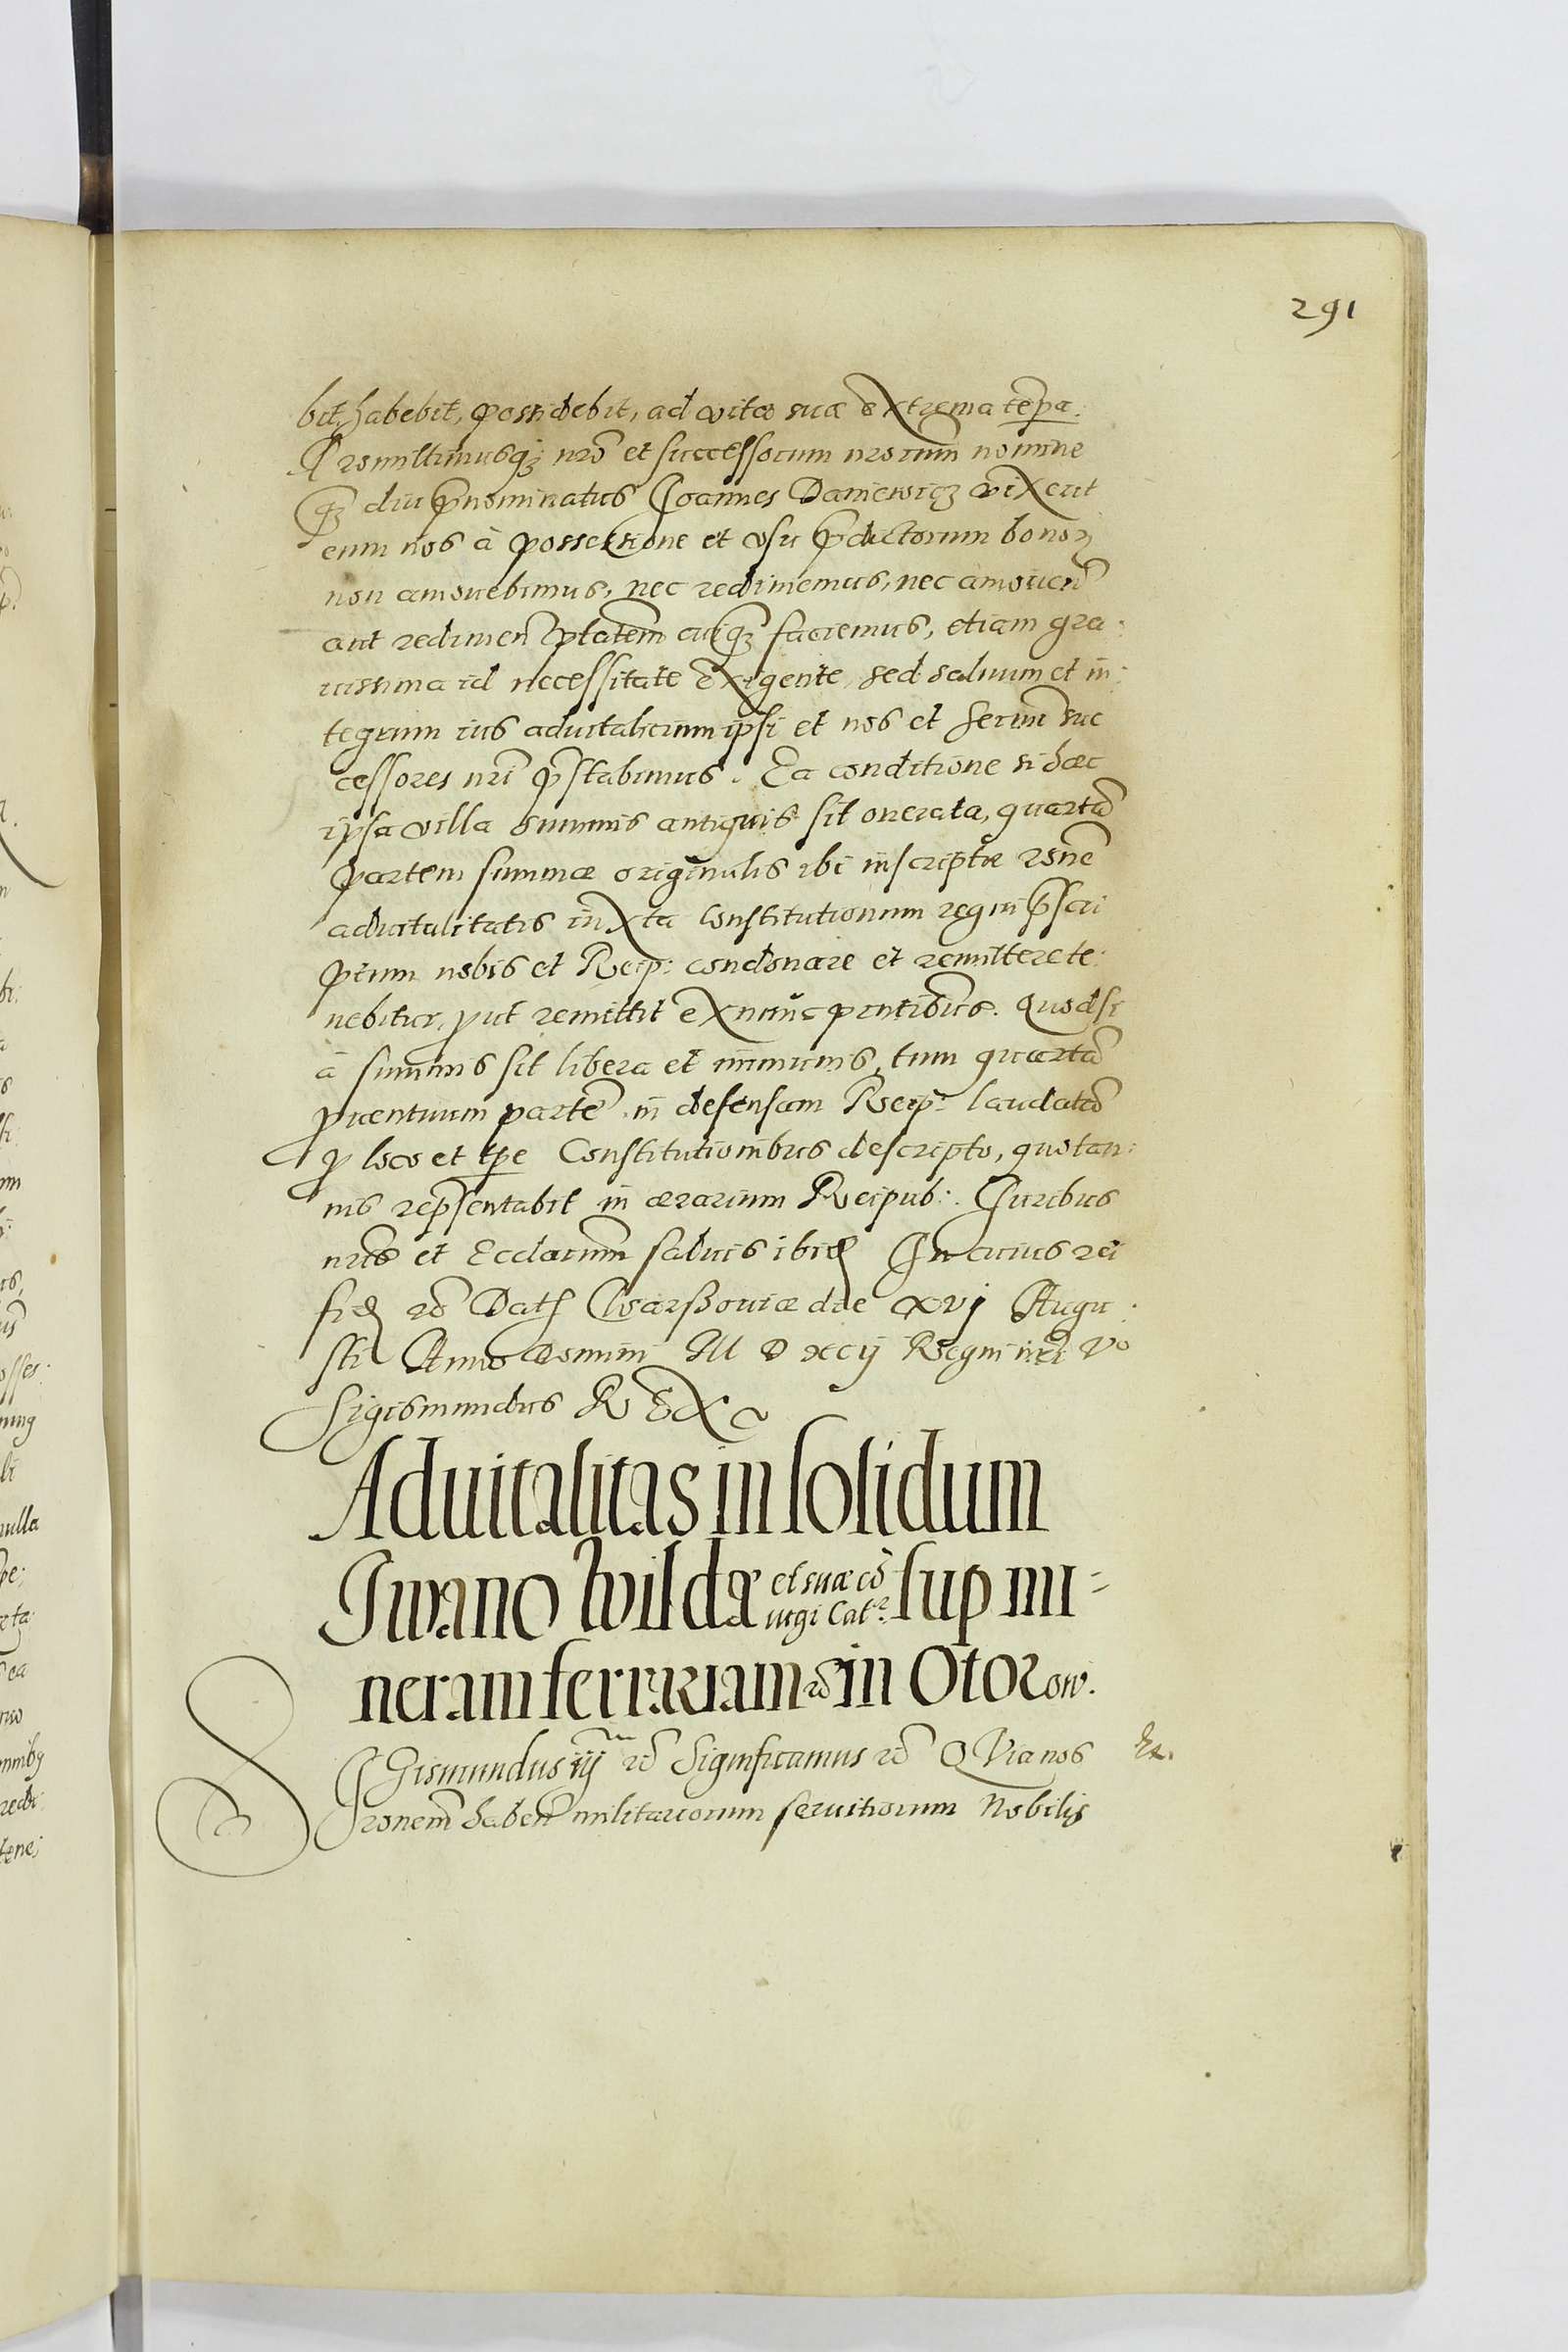 291
bit, habebit, possidebit, ad vitæ suæ extrema tēpa.
Promittimusqꝫ nro̅ et successorum nrorum nomine
qꝫ diu p̄nominatus Joannes Daniewicz vixerit
eum nos à possessione et vsu p̄dictorum bonoꝝ
non amouebimus, nec redimemus, nec amouen̄
aut redimen̄ p̄tatem cuiqꝫ faciemus, etiam gra:
uissima id necessitate exigente, sed saluum et in:
tegrum ius aduitalitium ipsi et nos et Sermi̅ suc
cessores nri̅ p̄stabimus. Ea conditione si hæc
ipsa villa summis antiquis sit onerata, quarta̅
partem summæ originalis ibi inscriptæ rōne̅
aduitalitatis iuxta Constitutionum regni p̄scri
ptum nobis et Reip: condonare et remittere te:
nebitur, put remittit ex nunc pn̅tibus. Quodsi
à summis sit libera et immunis, tum quarta̅
puentuum parte̅ in defensam Reip: laudata̅
p loco et tpe Constitutionibus descripto, quotan:
nis repn̅sentabit in ærarium Reipub:. Juribus
nris̅ et Ecclarum̅ saluis ibid In cuius rei
fid rc̅ Dat Warßouiæ die xvj Augu:
sti Anno Domini M D xcij Regni nri̅ vo
Sigismundus Rex
Aduitalitas in solidum
Iwano Wildæ et suæ co̅
iugi Cat. sup mi=
neram ferrariam rc̅ in Otorow.
SIGismundus iij rc̅ Significamus rc̅ QVia nos
rōnem̅ haben̅ militarium seruitiorum Nobilis